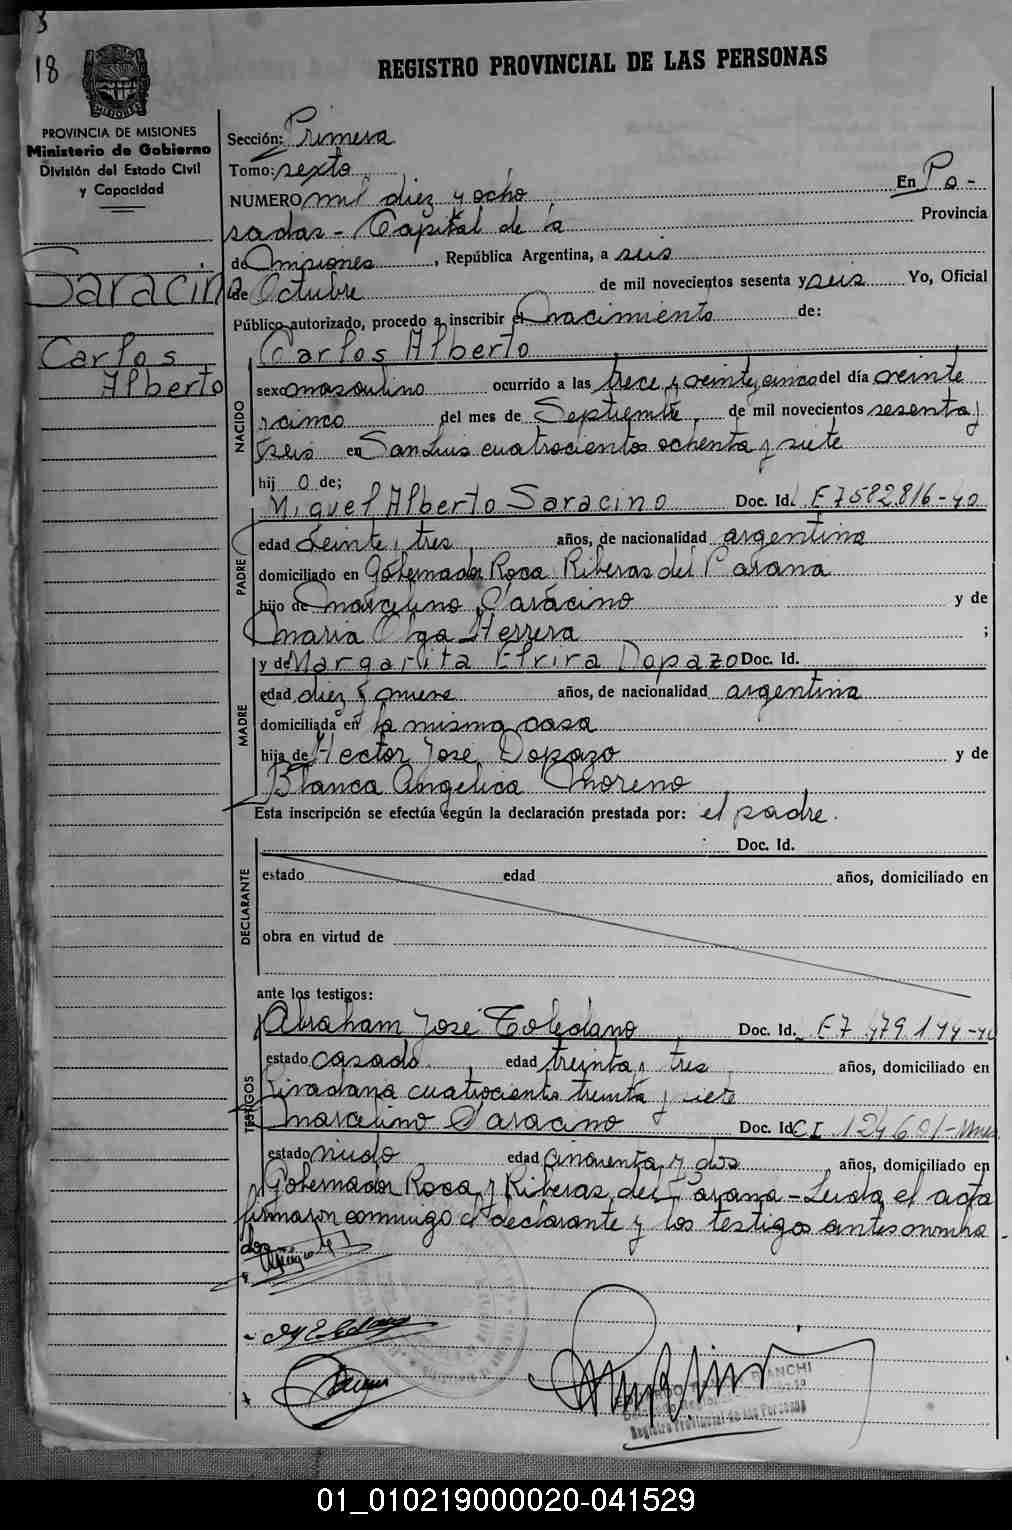 18
REGISTRO PROVINCIAL DE LAS PERSONAS
PROVINCIA DE MISIONES
Ministerio de Gobierno
División del Estado Civil
y Capacidad
Saracino
Carlos
Alberto
Sección: Primera
Tomo: sexto
NUMERO mil diez y ocho En Po-
sadas - Capital de la Provincia
de Misiones, República Argentina, a seis
de Octubre de mil novecientos sesenta y seis Yo, Oficial
Público autorizado, procedo a inscribir el nacimiento de:
NACIDO
Carlos Alberto
sexo masculino ocurrido a las trece y veinty cinco del día veinte
y cinco del mes de Septiembre de mil novecientos sesenta y
seis en San Luis cuatrocientos ochenta y siete
hij o de;
PADRE
Miguel Alberto Saracino Doc. Id. E7582816-40
edad veinte, tres años, de nacionalidad argentina
domiciliado en Gobernador Roca Riberas del Parana
hijo de Marcelino Saracino y de
Maria Olga Herrera ;
MADRE
y de Margarita Elvira Dopazo Doc. Id.
edad diez y nueve años, de nacionalidad argentina
domiciliada en la misma casa
hija de Hector José Dopazo y de
Blanca Angelica Moreno
Esta inscripción se efectúa según la declaración prestada por: el padre.
DECLARANTE
Doc. Id.
estado edad años, domiciliado en
obra en virtud de
ante los testigos:
TESTIGOS
Abraham José Toledano Doc. Id. E7
estado casado edad treinta y tres años, domiciliado en
cuatrocientos treinta y siete
Marcelino Saracino Doc. Id CI
estado viudo edad cincuenta y dos años, domiciliado en
Gobernador Roca y Riberas del Parana - Leida el acta
firmaron conmigo el declarante y los testigos antes nombra
dos
BIANCHI
Registro Provincial de las Personas
01_010219000020-041529